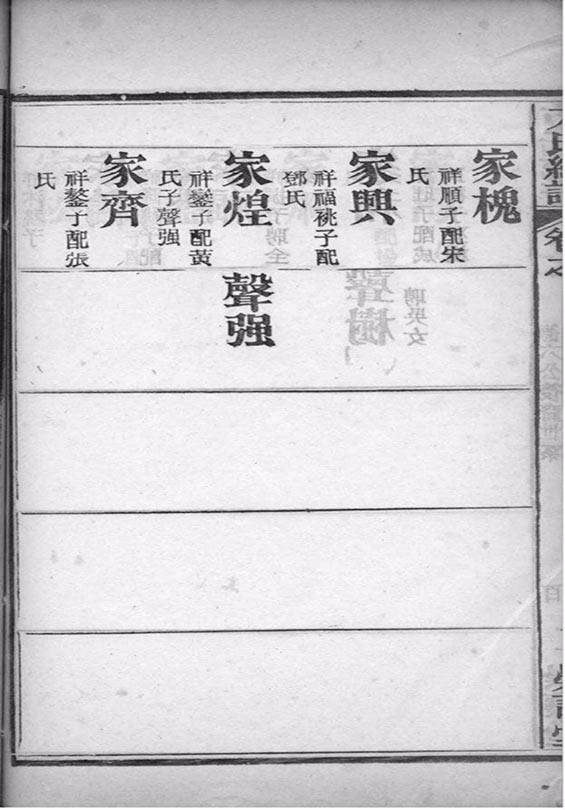 家槐
祥順子配宋
氏
家興
祥福祧子配
鄧氏
家煌
祥鑾子配黄
氏子聲强
家齊
祥鏊子配張
氏
聲强